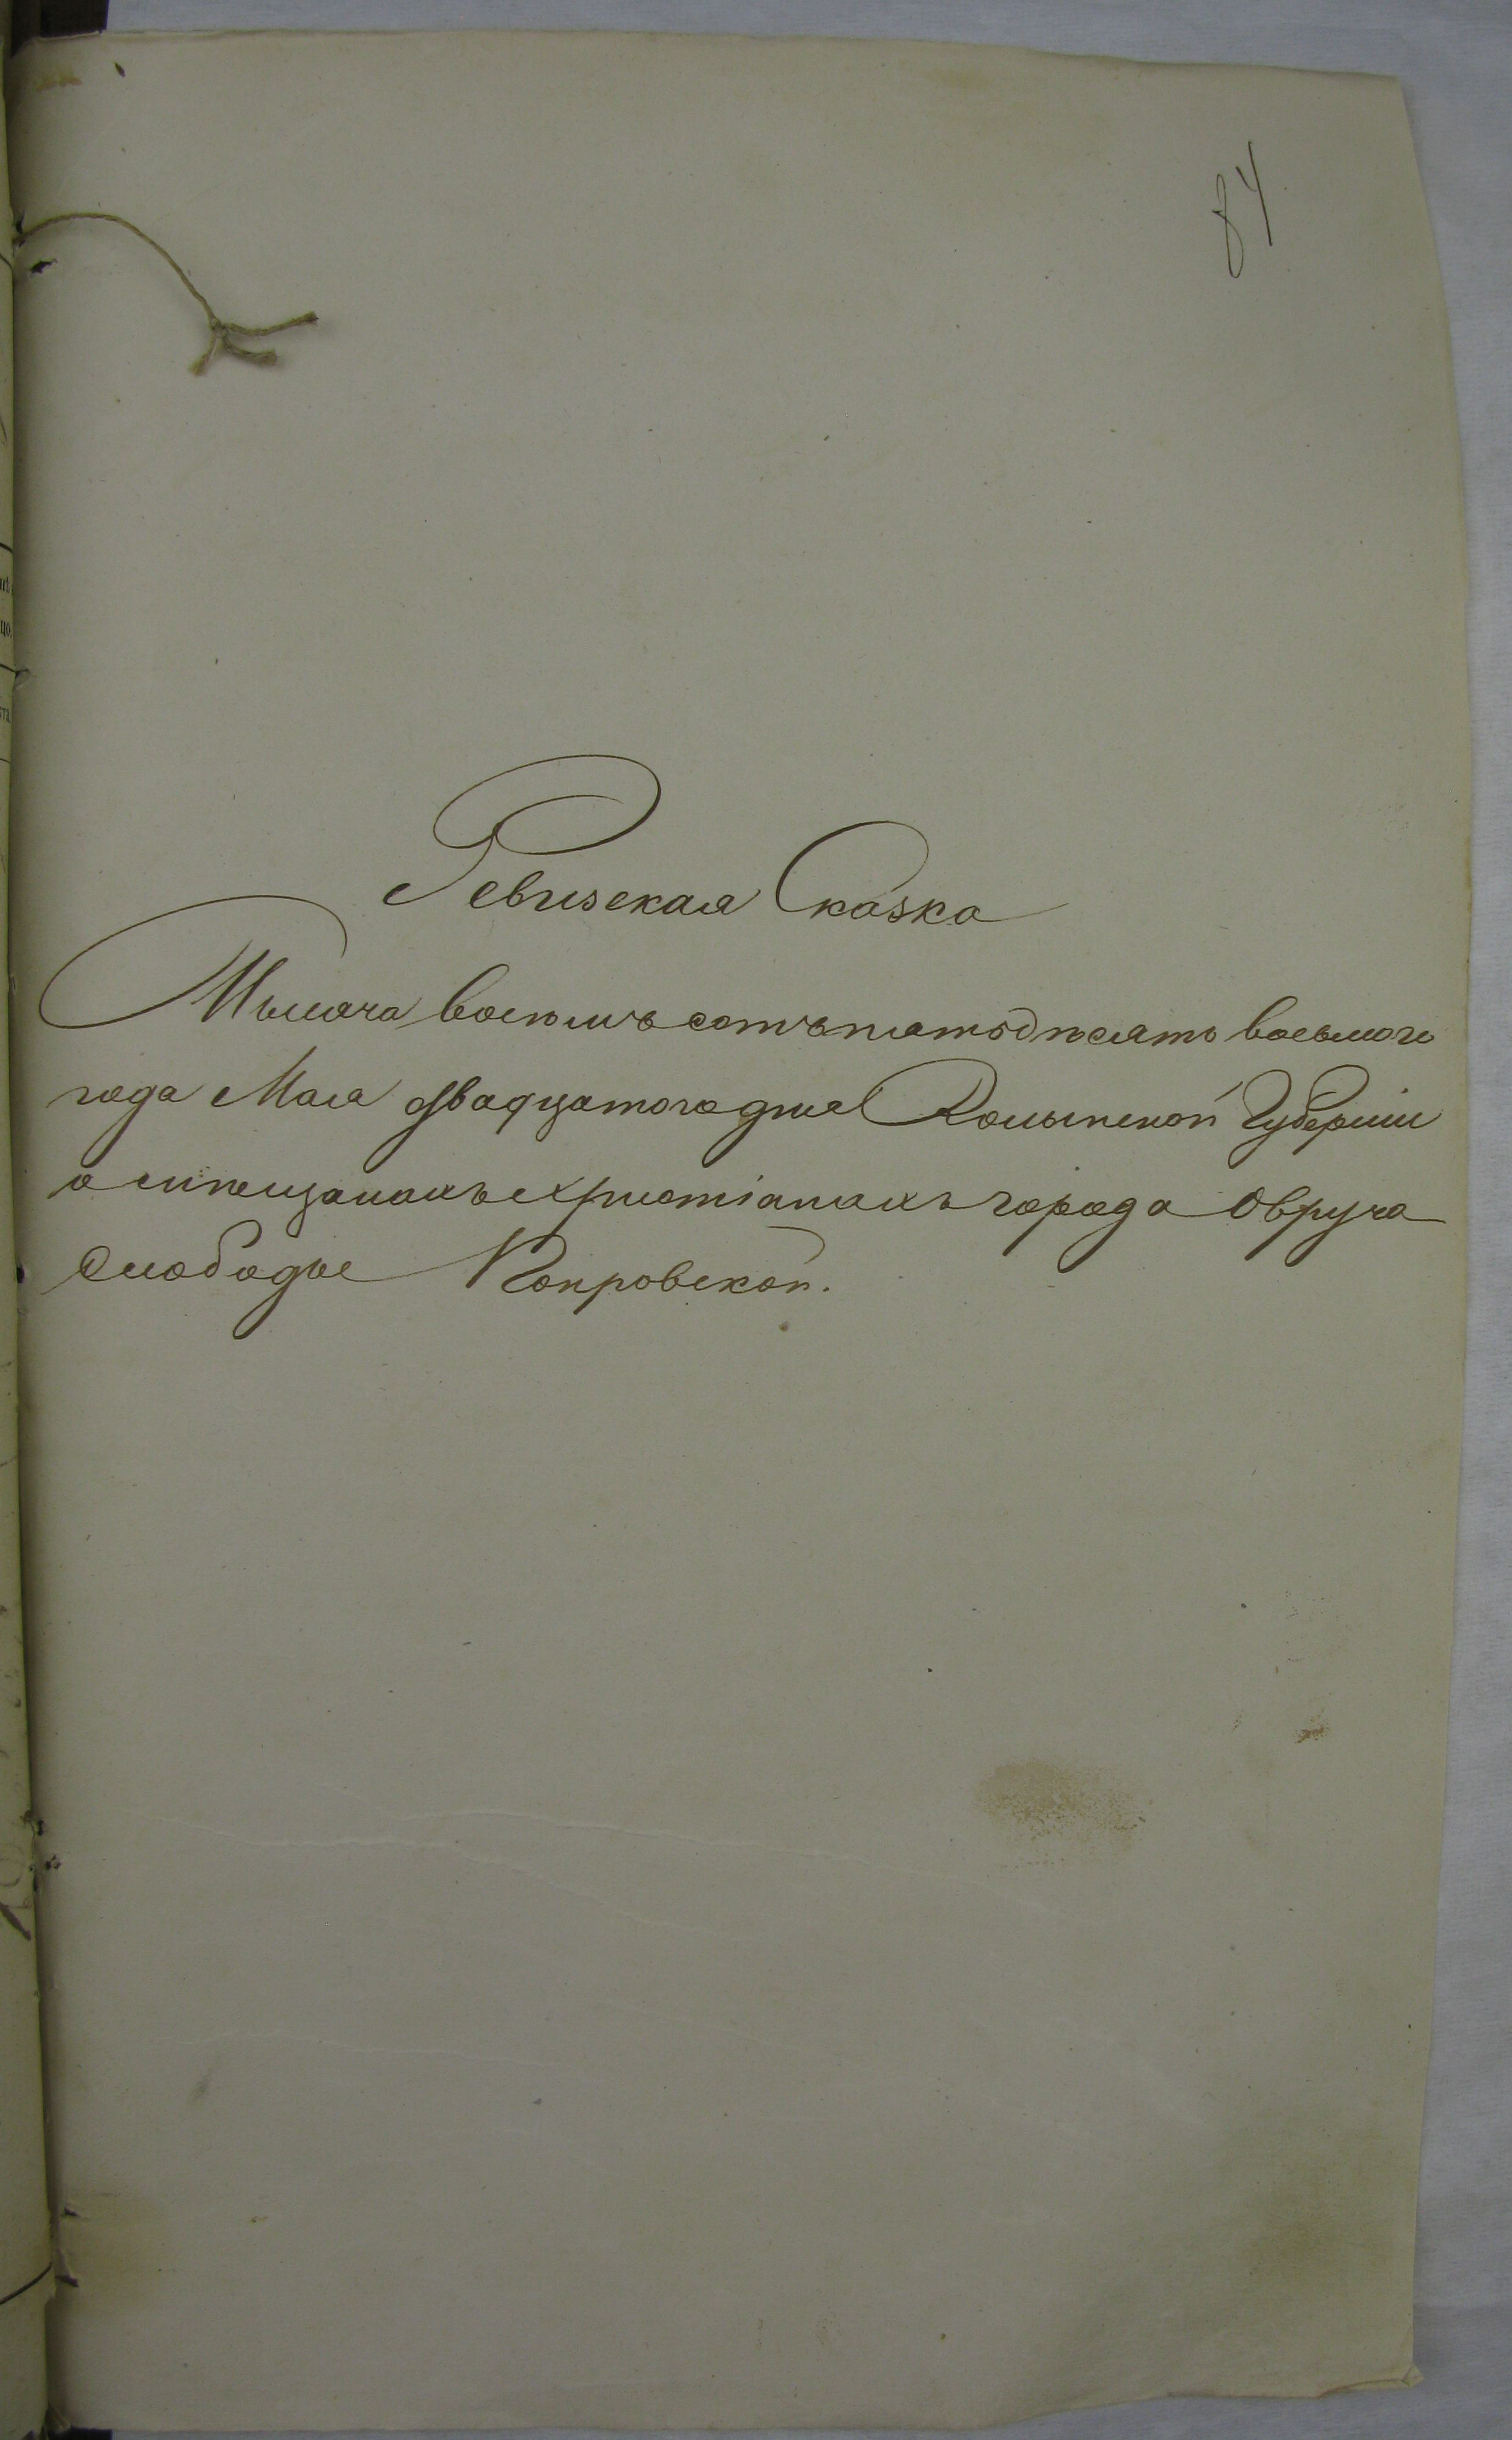 84
Ревизская Сказка
Тысяча восемь сотъ пятьдесятъ восьмого
года Мая двадцатого дня Волынской Губерніи
о мѣщанахъ христіанахъ города Овруча
Слободѣ